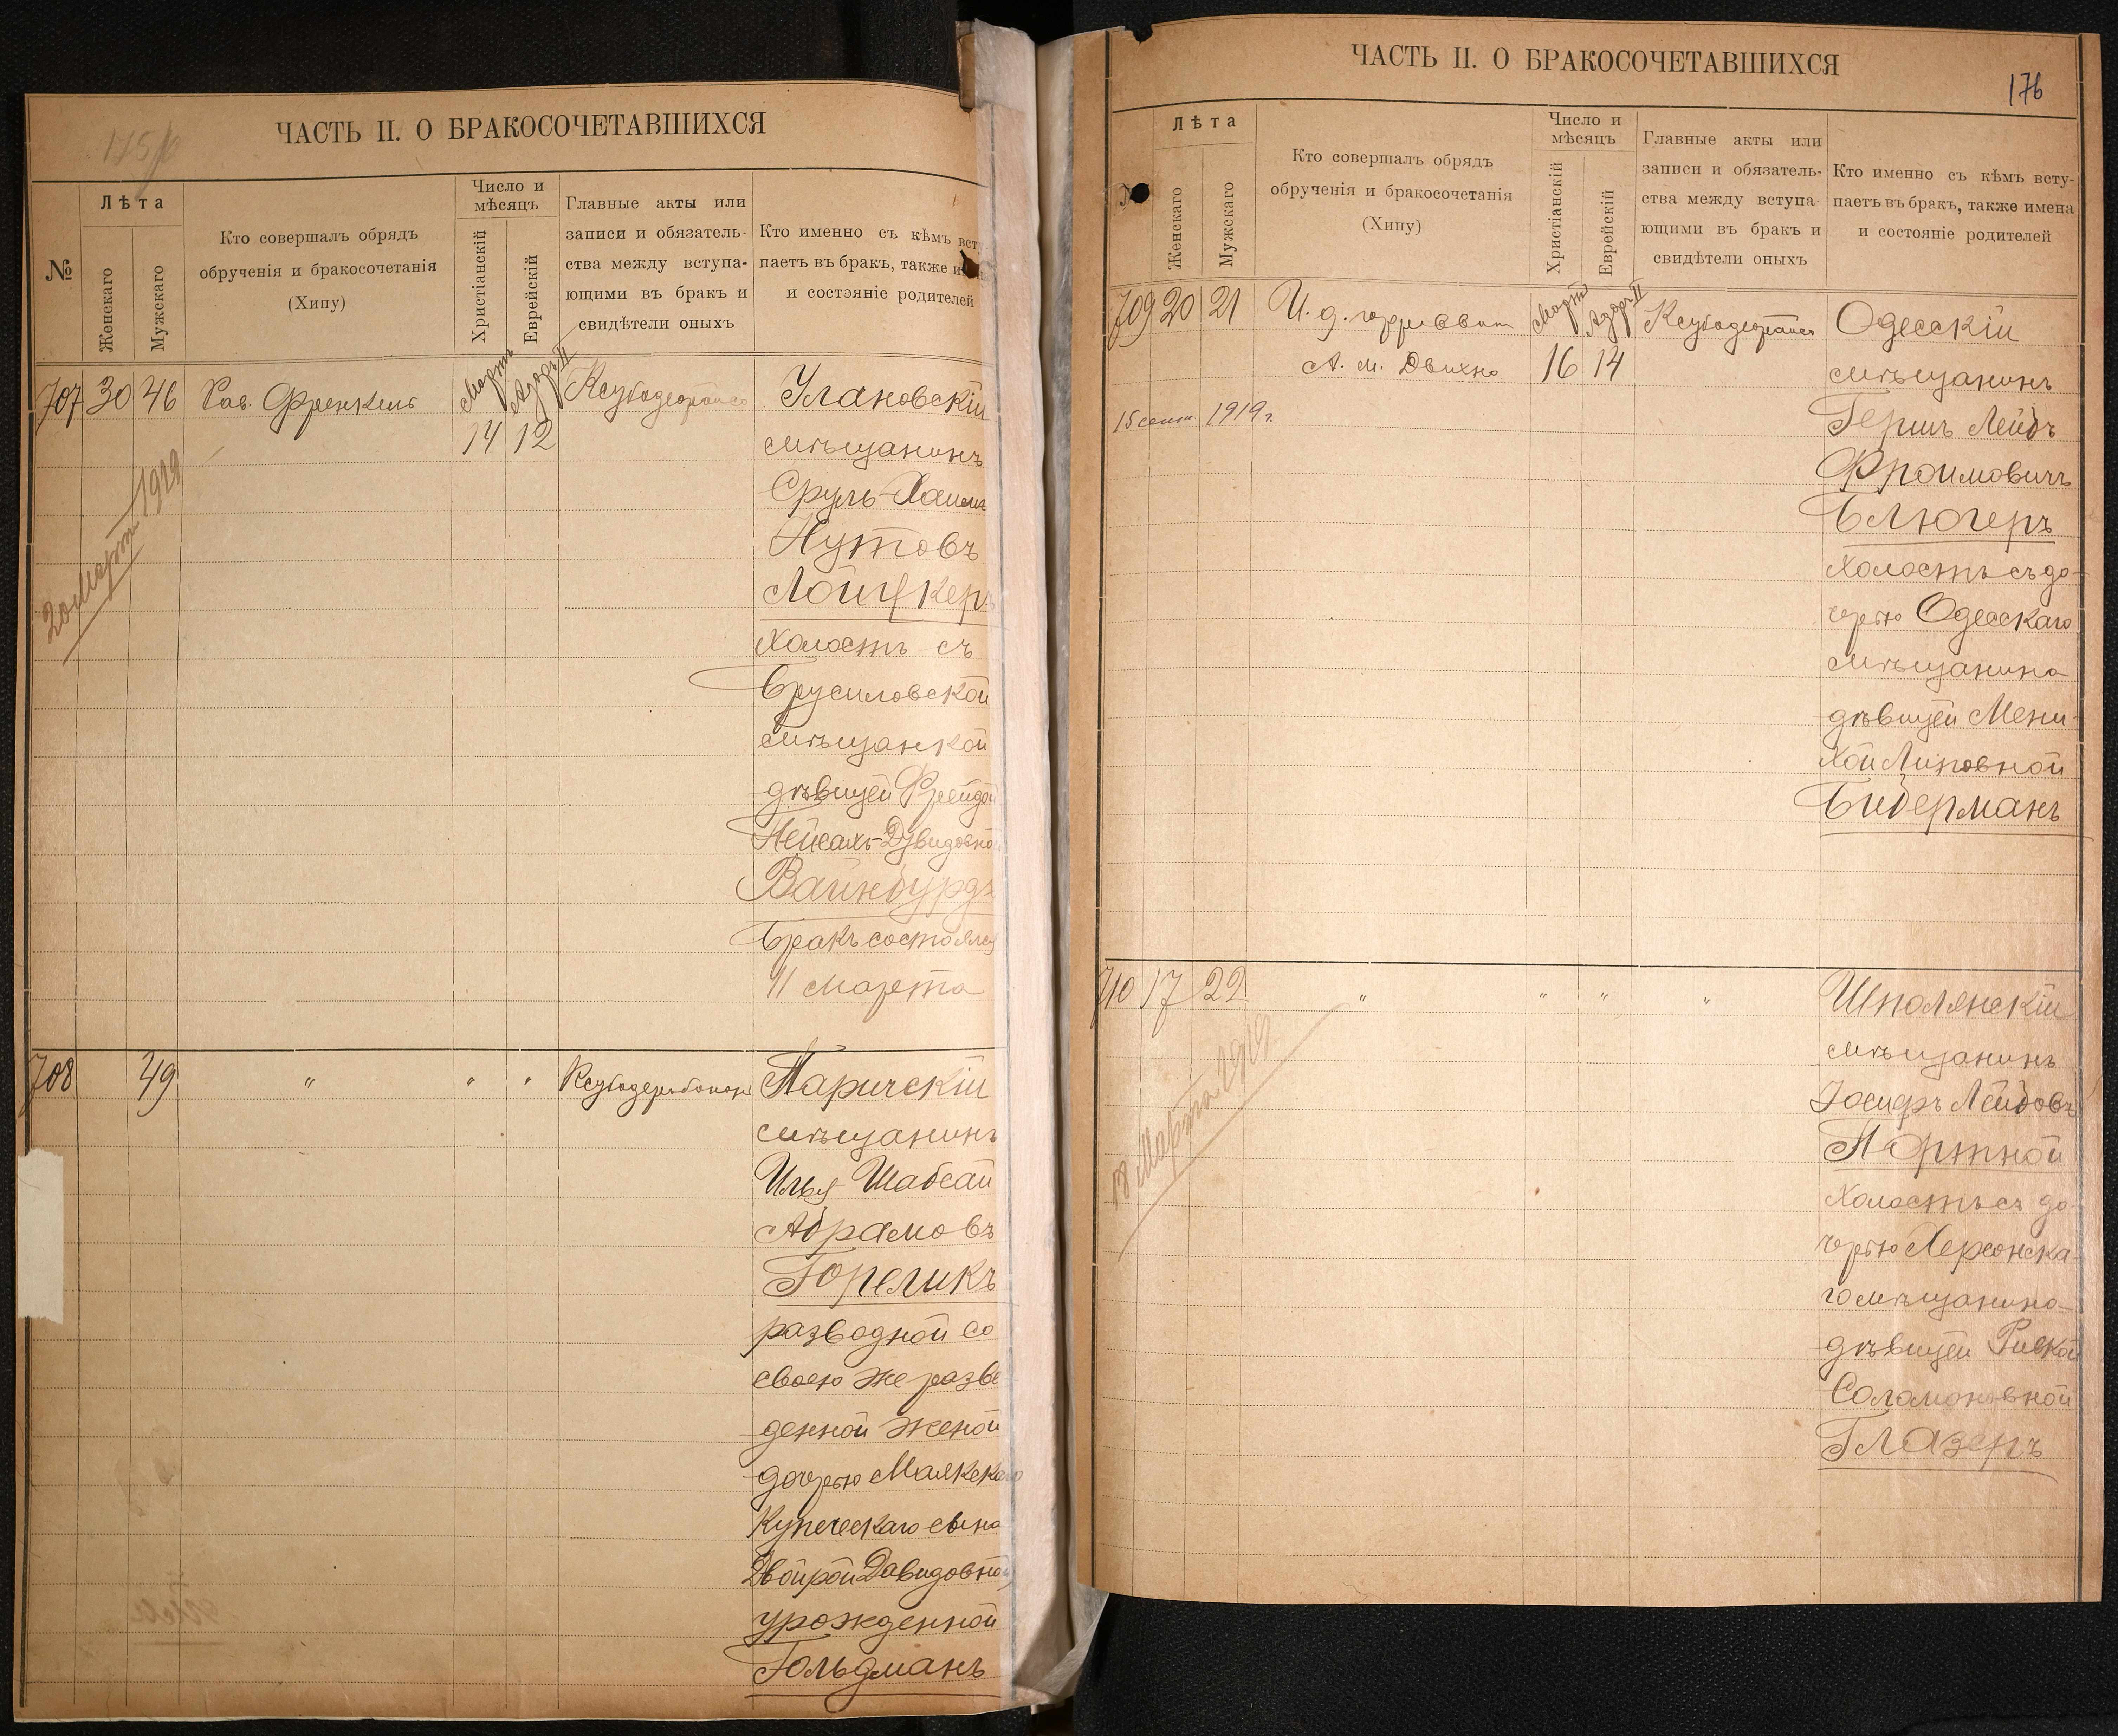 175
ЧАСТЬ II. О БРАКОСОЧЕТАВШИХСЯ
№
Лѣта
Женскаго
Мужскаго
Кто совершалъ обрядъ
обрученія и бракосочетанія
(Хипу)
Число и
мѣсяцъ
Христіанскій
Еврейскій
Главные акты или
записи и обязатель-
ства между вступа-
ющими въ бракъ и
свидѣтели оныхъ
Кто именно съ кѣмъ вст
паетъ въ бракъ, также и
и состояніе родителей
707 30 46 Рав. Френкель Мартъ 14 Адаръ II 12
Улановскій
мѣщанинъ
Сруль-Хаимъ
Нутовъ
Лойцкеръ
холостъ съ
Брусиловской
мѣщанкой
дѣвицей Фрейдой
Нейсахъ-Дувидовной
Вайнбурдъ
Бракъ состоялся
11 марта
20 Марта 1919
708 49 " " "
Паричскій
мѣщанинъ
Илья Шабсай
Абрамовъ
Гореликъ
разводной со
своею же разве
денной женой
дочерью Маякскаго
купеческаго сына
Двойрой Давидовной
урожденной
Гольдманъ
ЧАСТЬ II. О БРАКОСОЧЕТАВШИХСЯ
176
Лѣта
Женскаго
Мужскаго
Кто совершалъ обрядъ
обрученія и бракосочетанія
(Хипу)
Число и
мѣсяцъ
Христіанскій
Еврейскій
Главные акты или
записи и обязатель-
ства между вступа-
ющими въ бракъ и
свидѣтели оныхъ
Кто именно съ кѣмъ всту-
паетъ въ бракъ, также имена
и состояніе родителей
709 20 21 И. д. Мартъ Адаръ II
А. М. 16 14
15 сент. 1919 г.
Одесскій
мѣщанинъ
Гершъ Лейбъ
Фроимовичъ
Блюгеръ
холостъ съ до-
черью Одесскаго
мѣщанина
дѣвицей Мени-
хой Липовной
Бидерманъ
710 17 22 " " " "
Шполянскій
мѣщанинъ
Іосифъ Лейбовъ
Портной
холостъ съ до-
черью Херсонска-
го мѣщанина
дѣвицей Ривкой
Соломоновной
Глазеръ
18 Марта 1919